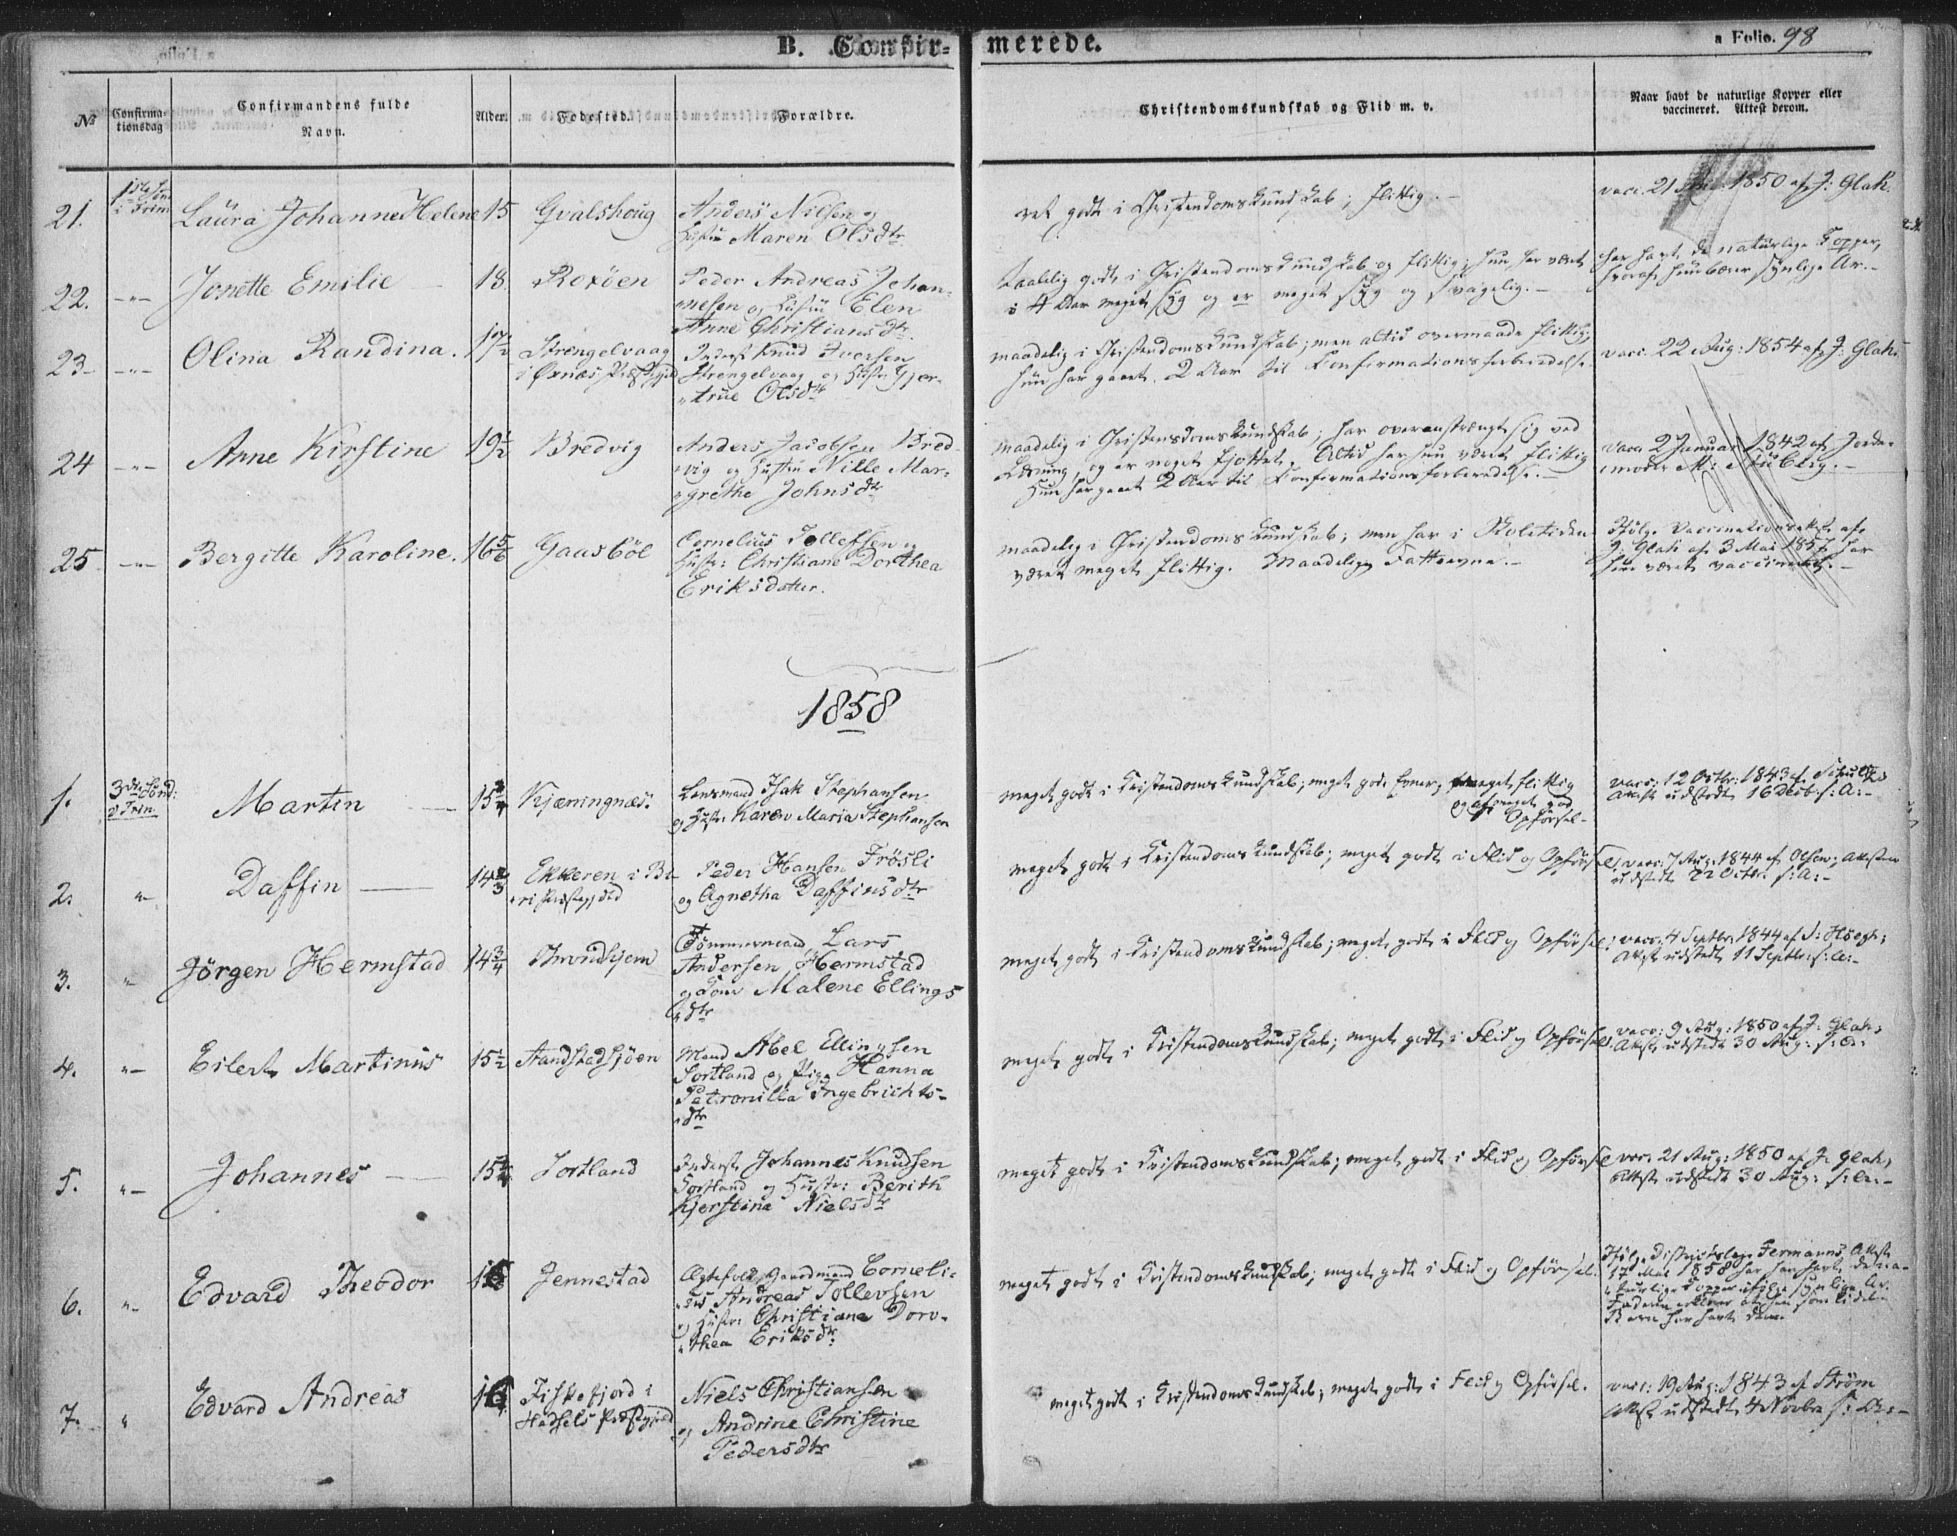 B. Confir- merede. a Folio. 98
No Confirmationsdag Confirmandens fulde Navn. Alder. Fødested. Forældre. Christendomskundskab og Flid m. v. Naar havt de naturlige Kopper eller vaccineret. Attest derom.
21. 1ste Sønd i Trin. Laura Johanne Helene 15 Gvalshoug Anders Nilsen og
Hustru Maren Olsdtr
ret godt i Christendomskundskab; flittig. -
vacc. 21 1850 af J: Glak.
22. -"- Jonette Emilie 18. Roxöen Peder Andreas Johan-
nesen og Hustru Elen
Anne Christiansdtr
taalelig godt i Christendomskundskab og flittig; hun har været
i 4 Aar meget syg og er meget syg og svagelig. -
har havt de naturlige Kopper,
hvoraf hun bærer synlige Ar. -
23. -"- Olina Randina. 17 1/2 Strengelvaag
i Øxnæs Præstegjeld
Inderst Knud Iversen
Strengelvaag og Hustr: Gjer-
"true Olsdtr
maadelig i Christendomskundskab; men altid overmaade flittig;
hun har gaaet 2 Aar til Konfirmationsforberedelse.
vacc. 22 Aug: 1854 af J: Glak.
24 -"- Anne Kirstine 19 1/2 Bredvig Anders Jacobsen Bred-
vig og Hustru Nille Mar-
"grethe Johnsdtr
maadelig i Christendomskundskab; har overanstrængt sig ved
Læsning, og er noget fjottet. Altid har hun været flittig
Hun har gaaet 2 Aar til Konfirmationsforberedelse. -
vacc. 2 Januar 1842 af Jorde-
moder M:
25 -"- Bergitte Karoline. 16 5/6 Gaasböl Cornelius Tollefsen og
Hustr: Christiane Dorthea
Eriksdatter.
maadelig i Christendomskundskab; men har i Skoletiden
været meget flittig. Maadelig Fatteevne. -
Ifølge Vaccinationsattest af
J: Glak af 3 Mai 1857 har
hun været vaccineret. -
1858
1. 3die Sønd:
i Trin. Martin 15 3/4 Kjæringnæs. Lensmand Isak Stephansen
og Hustr: Karen Maria Stephansen
meget godt i Kristendomskundskab; meget gode Evner, meget flittig
og af meget god
Opførsel -
vacc: 12 Octbr: 1843 af Schultz
Attest udstedt 16 Decb: s: A: -
2. " Daffin 14 2/3 Ekkeren i Bø-
Præstegjeld
Peder Hansen Frösli
og Agnetha Daffinsdtr
meget godt i Kristendomskundskab; meget godt i Flid og Opførsel;
vacc: 7 Aug: 1844 af Olsen; Attesten
udstedt 22 Octbr: s: A: -
3. " Jörgen Hermstad 14 3/4 Throndhjem Tømmermand Lars
Andersen Hermstad
og Kone Malene Ellings
"dtr
meget godt i Kristendomskundskab; meget godt i Flid og Opførsel;
vacc. 4 Septbr. 1844 af Høegh;
Attest udstedt 11 Septbr: s: a: -
4. "- Eilert Martinus 15 1/2 Sandstadsjöen Mand Abel Ellingsen
Sortland og Pige Hanna
Petronilla Ingebrichts-
"dtr
meget godt i Kristendomskundskab; meget godt i Flid og Opførsel.
vacc: 9 Aug: 1850 af J: Glak;
Attest udstedt 30 Aug: s: a:
5. "- Johannes 15 Sortland Inderst Johannes Knudsen
Sortland og Hustr: Berith
Kjerstina Nielsdtr
meget godt i Kristendomskundskab; meget godt i Flid og Opførsel
vacc: 21 Aug: 1850 af J: Glak;
Attest udstedt 30 Aug: s: a: -
6. "- Edvard Theodor 16 Jennestad Ægtefolk Gaardmand Corneli-
"us Andreas Tollevsen
og Hustr: Christiana Doro-
"thea Eriksdtr:
meget godt i Kristendomskundskab; meget godt i Flid og Opførsel.
Ifølge Districtslæge Fermanns Attest
17 Mai 1858 har han havt de na-
"turlige Kopper ifølge synlige Ar.
Faderen erklærer at han som lidet
Barn har havt dem.
7. " Edvard Andreas 16 Fiskefjord i
Hadsels Præstegjeld
Niels Christiansen
og Andrine Christine
Pedersdtr
meget godt i Kristendomskundskab; meget godt i Flid og Opførsel.
vacc: 19 Aug: 1843 af Ström
Attest udstedt 4 Novbr s: A: -